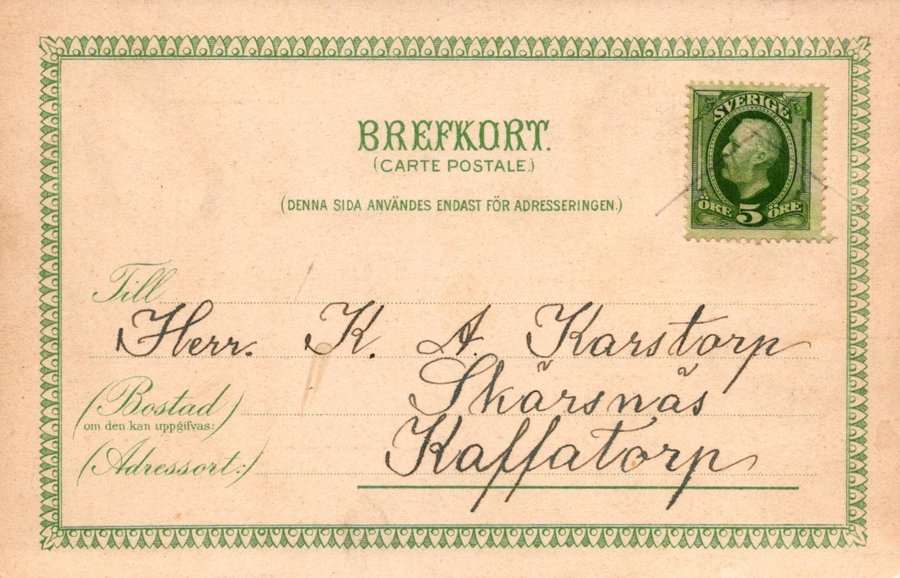 BREFKORT.
(CARTE POSTALE.)
(DENNA SIDA ANVÄNDES ENDAST FÖR ADRESSERINGEN.)
SVERIGE
ÖRE 5 ÖRE
Till
Herr. K. A. Karstorp
Skärsnäs
(Bostad)
om den kan uppgifvas:
(Adressort:)
Kaffatorp